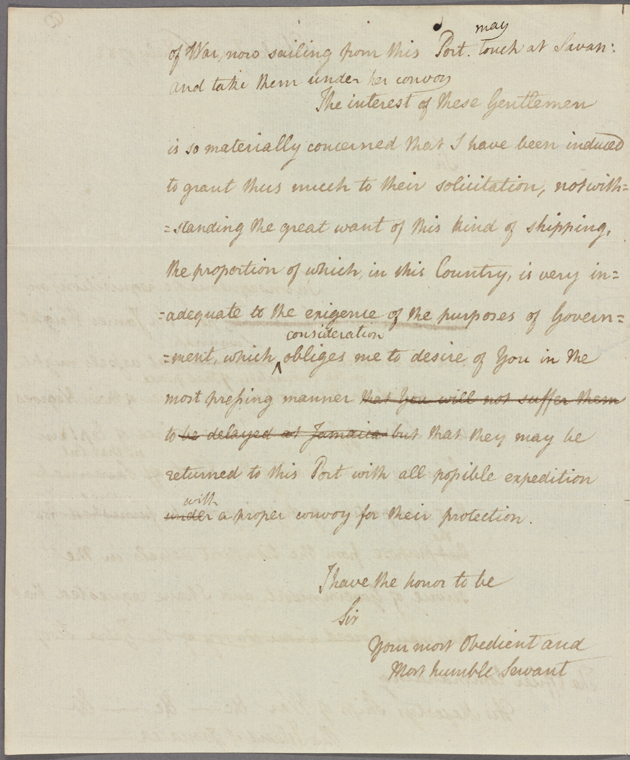 may
of War, now sailing from this Port. touch at Savan:
and take them under her convoy
The interest of these Gentlemen
is so materially concerned that I have been induced
to grant thus much to their solicitation, notwith=
=standing the great want of this kind of shipping,
the proportion of which, in this Country, is very in=
=adequate to the exigence of the purposes of Govern=
consideration
=ment, which ^ obliges me to desire of You in the
most pressing manner that You will not suffer them
to be delayed at Jamaica but that they may be
returned to this Port with all possible expedition
with
under a proper convoy for their protection.
I have the honor to be
Sir
Your most Obedient and
Most humble Servant